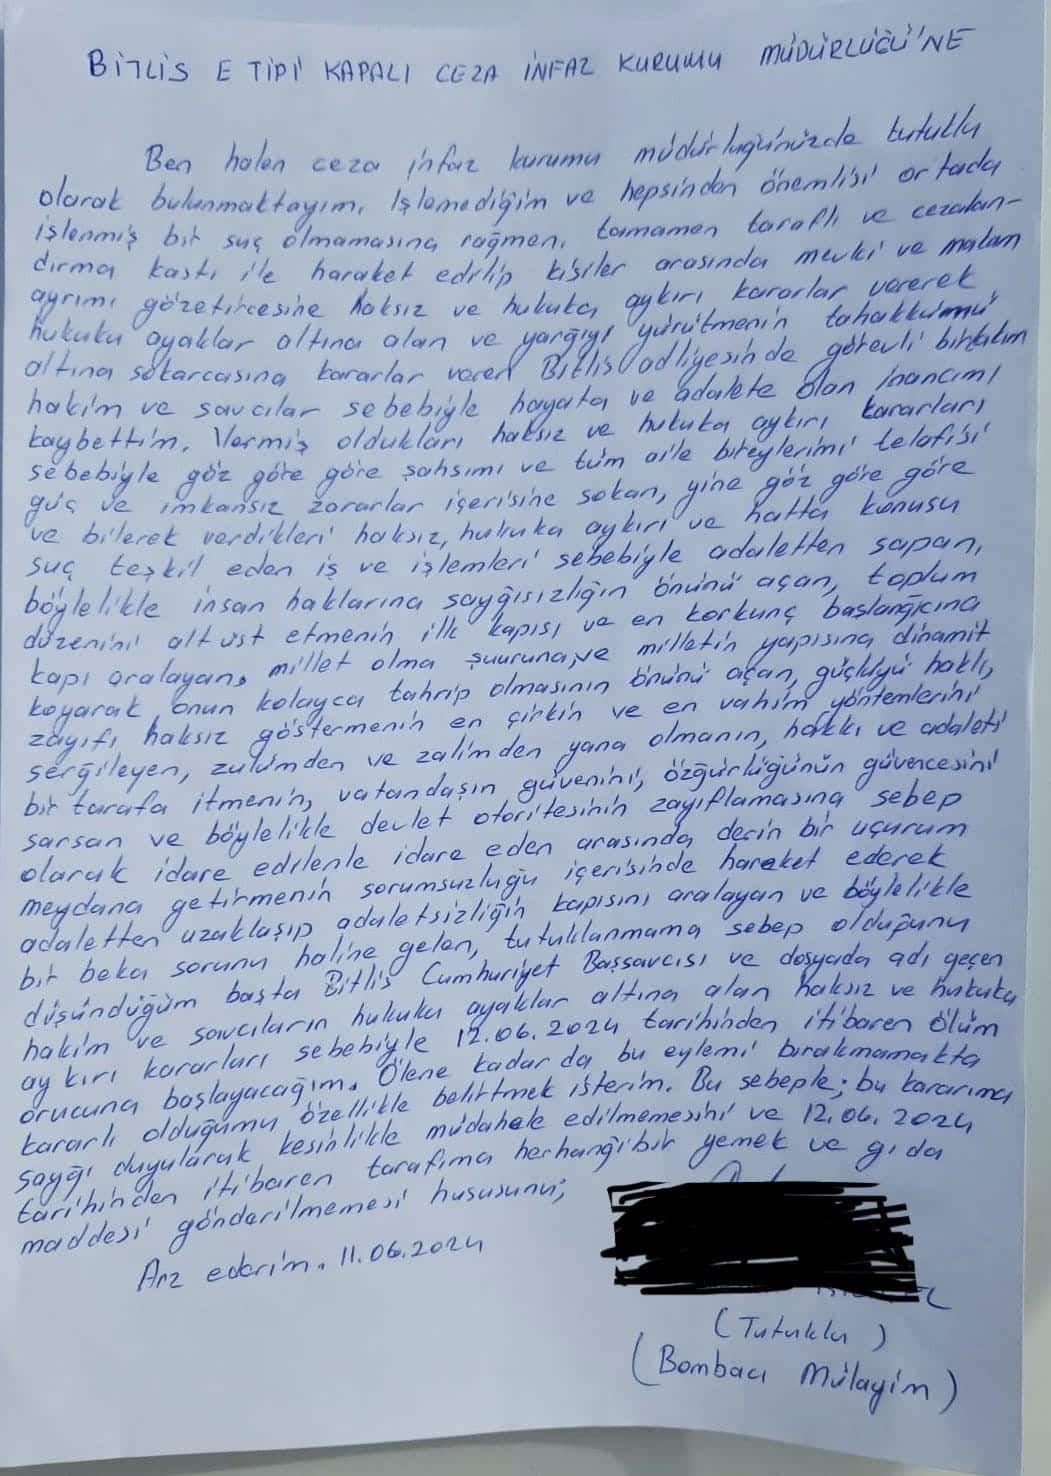 BİTLİS E TİPİ KAPALI CEZA İNFAZ KURUMU MÜDÜRLÜĞÜ'NE
Ben halen ceza infaz kurumu müdürlüğünüzde tutuklu
olarak bulunmaktayım. İşlemediğim ve hepsinden önemlisi ortada
işlenmiş bir suç olmamasına rağmen, tamamen taraflı ve cezalan-
dırma kastı ile hareket edilip kişiler arasında mevki ve makam
ayrımı gözetircesine haksız ve hukuka aykırı kararlar vererek
hukuku ayaklar altına alan ve yargıyı yürütmenin tahakkümü
altına sokarcasına kararlar veren Bitlis adliyesinde görevli birtakım
hakim ve savcılar sebebiyle hayata ve adalete olan inancımı
kaybettim. Vermiş oldukları haksız ve hukuka aykırı kararları
sebebiyle göz göre göre şahsımı ve tüm aile bireylerimi telafisi
güç ve imkansız zararlar içerisine sokan, yine göz göre göre
ve bilerek verdikleri haksız, hukuka aykırı ve hatta konusu
suç teşkil eden iş ve işlemleri sebebiyle adaletten sapan,
böylelikle insan haklarına saygısızlığın önünü açan, toplum
düzenini alt üst etmenin ilk kapısı ve en korkunç başlangıcına
kapı aralayan, millet olma şuuruna ve milletin yapısına dinamit
koyarak onun kolayca tahrip olmasının önünü açan, güçlüyü haklı,
zayıfı haksız göstermenin en çirkin ve en vahim yöntemlerini
sergileyen, zulümden ve zalimden yana olmanın, hakkı ve adaleti
bir tarafa itmenin, vatandaşın güvenini, özgürlüğünün güvencesini
sarsan ve böylelikle devlet otoritesinin zayıflamasına sebep
olarak idare edilenle idare eden arasında derin bir uçurum
meydana getirmenin sorumsuzluğu içerisinde hareket ederek
adaletten uzaklaşıp adaletsizliğin kapısını aralayan ve böylelikle
bir beka sorunu haline gelen, tutuklanmama sebep olduğunu
düşündüğüm başta Bitlis Cumhuriyet Başsavcısı ve dosyada adı geçen
hakim ve savcıların hukuku ayaklar altına alan haksız ve hukuka
aykırı kararları sebebiyle 12.06.2024 tarihinden itibaren ölüm
orucuna başlayacağım. Ölene kadar da bu eylemi bırakmamakta
kararlı olduğumu özellikle belirtmek isterim. Bu sebeple; bu kararıma
saygı duyularak kesinlikle müdahale edilmemesini ve 12.06.2024
tarihinden itibaren tarafıma herhangi bir yemek ve gıda
maddesi gönderilmemesi hususunu;
Arz ederim. 11.06.2024
(Tutuklu)
(Bombacı Mülayim)